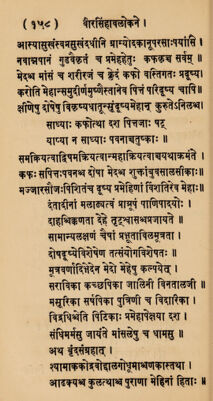 (१५८) वीरसिंहावलोकने ।
आस्यासुखंस्वप्नसुखंदधीनि ग्राम्योदकानूपरसाःपयांसि ।
नवान्नपानं गुडवैकृतं च प्रमेहहेतुः कफकृच्च सर्वम् ॥
मेदश्च मांसं च शरीरजं च क्लेदं कफो वस्तिगतः प्रदूष्य।
करोति मेहान्समुदीर्णमुष्णैस्तानेव पित्तं परिदूष्य चापि॥
क्षीणेषु दोषेष्वविकृष्यधातून्संदूष्यमेहान् कुरुतेऽनिलश्च।
साध्याः कफोत्था दश पित्तजाः षट्
याप्या न साध्याः पवनाच्चतुष्काः ॥
समक्रियत्वाद्विषमक्रियत्वान्महाक्रियत्वाच्चयथाक्रमंते ।
कफः सपित्तःपवनश्च दोषा मेदश्च शुक्रांबुवसालसीकाः॥
मज्जारसौजःपिशितंच दूष्य प्रमेहिणां विंशतिरेव मेहाः॥
दंतादीनां मलाढ्यत्वं प्राग्रूपं पाणिपादयोः ।
दाहश्चिक्कणता देहे तृट्श्वासश्चप्रजायते ॥
सामान्यलक्षणं चैषां प्रभूताविलमूत्रता ।
दोषदूष्यविशेषेण तत्संयोगविशेषतः ॥
मूत्रवर्णादिभेदेन भेदो मेहेषु कल्पयेत् ।
सराविका कच्छपिका जालिनी विनतालजी ॥
मसूरिका सर्षपिका पुत्रिणी च विदारिका ।
विद्रधिश्चेति पिटिकाः प्रमेहापेक्षया दश ।
संधिमर्मसु जायंते मांसलेषु च धामसु ॥
अथ वृंदसंग्रहात् ।
श्यामाककोद्रवोद्दालगोधूमाश्चणकास्तथा ।
आढक्यश्च कुलत्थाश्च पुराणा मेहिनां हिताः ॥